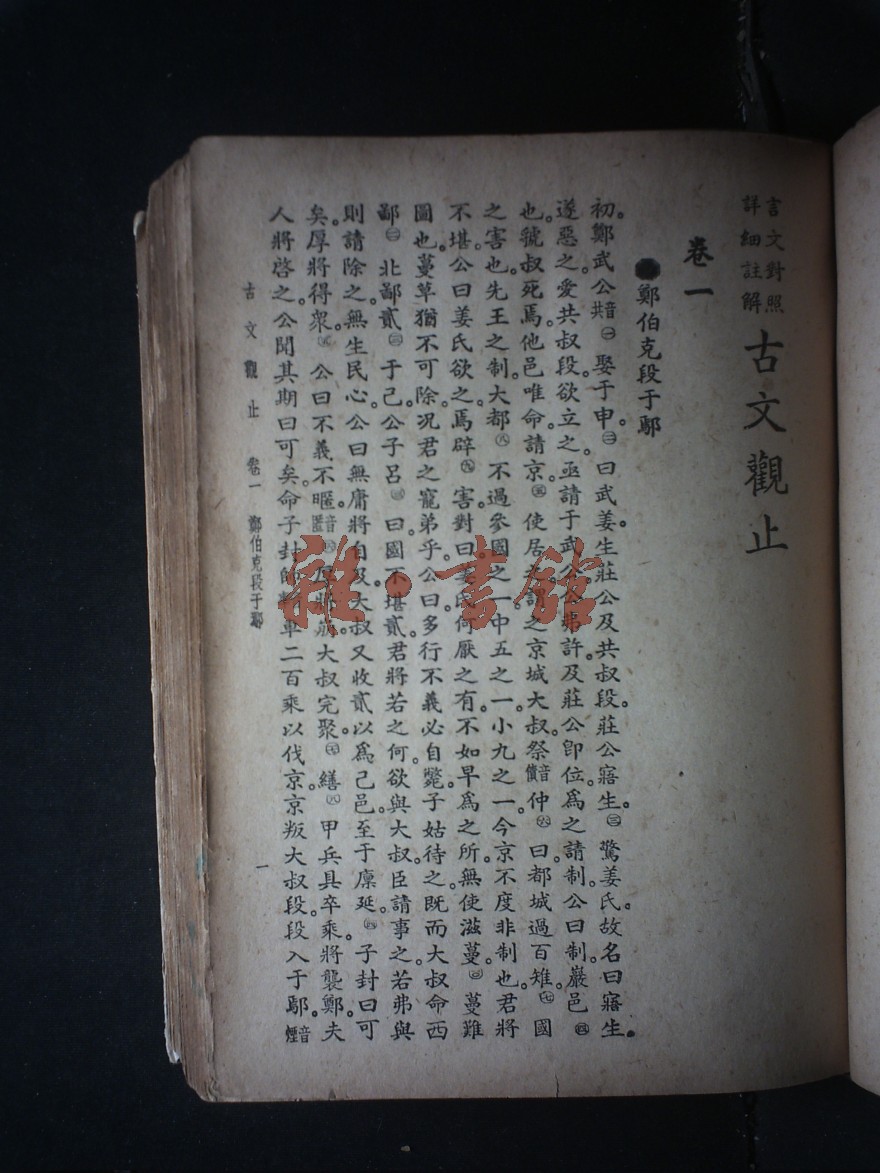 言文對照
詳細註解
古文觀止
卷一
鄭伯克段于鄢
初。鄭武公音共㊀娶于申。㊁曰武姜。生莊公及共叔段。莊公寤生。㊂驚姜氏。故名曰寤生。
遂惡之。愛共叔段。欲立之。亟請于武公。公弗許。及莊公卽位。爲之請制。公曰。制。巖邑㊃
也。虢叔死焉。他邑唯命。請京。㊄使居之。謂之京城大叔。祭音債仲㊅曰。都城過百雉。㊆國
之害也。先王之制。大都㊇不過參國之一。中五之一。小九之一。今京不度。非制也。君將
不堪。公曰。姜氏欲之。焉辟㊈害。對曰。姜氏何厭之有。不如早爲之所。無使滋蔓。㊉蔓難
圖也。蔓草猶不可除。況君之寵弟乎。公曰。多行不義必自斃。子姑待之。旣而大叔命西
鄙北鄙貳于己。公子呂曰。國不堪貳。君將若之何。欲與大叔。臣請事之。若弗與
則請除之。無生民心。公曰。無庸。將自及。大叔又收貳以爲己邑。至于廩延。子封曰。可
矣。厚將得衆。公曰。不義不暱。音匿厚將崩。大叔完聚。繕甲兵。具卒乘。將襲鄭。夫
人將啓之。公聞其期。曰可矣。命子封帥車二百乘以伐京。京叛大叔段。段入于鄢。音煙
古文觀止 卷一 鄭伯克段于鄢
一
雜·書館